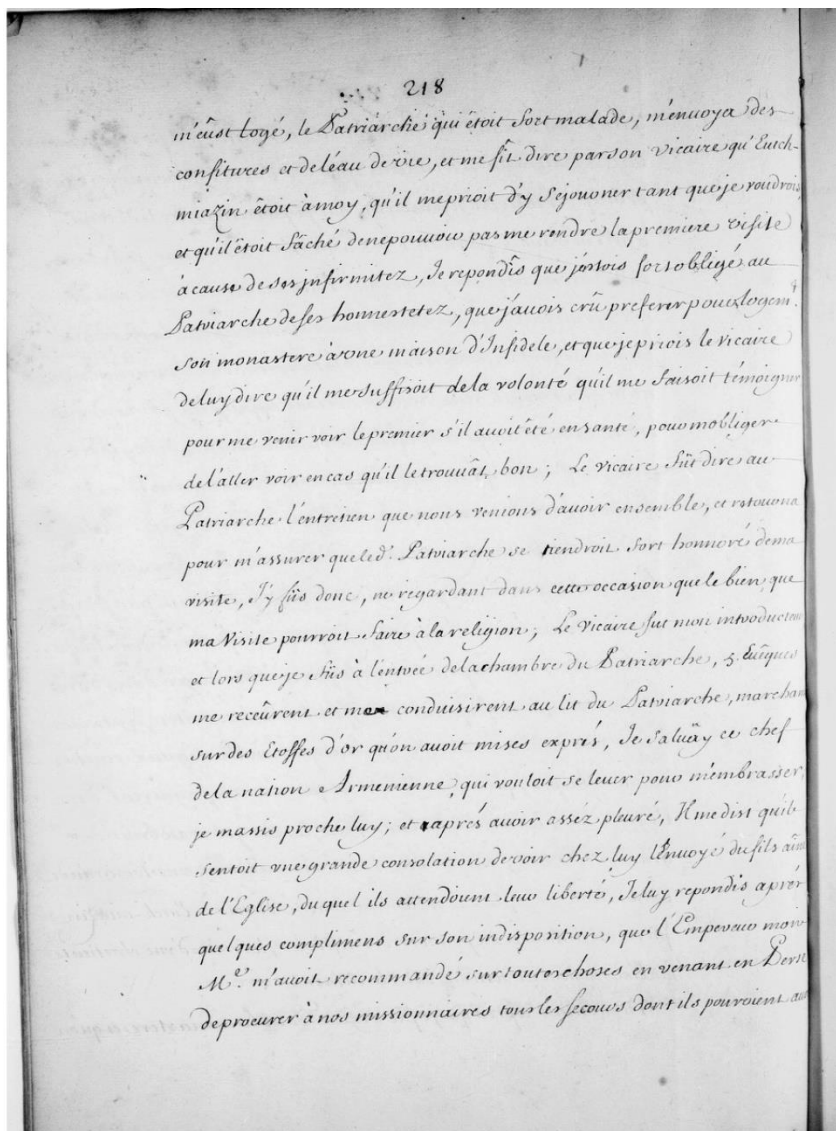 218
m'eûst logé, le Patriarche qui êtoit fort malade, m'envoya des
confitures et de l'eau de vie, et me fit dire par son vicaire qu'Eutch-
miazin êtoit à moy, qu'il me prioit d'y séjourner tant que je voudrois,
et qu'il êtoit fâché de ne pouvoir pas me rendre la premiere visite
à cause de ses jnfirmitez, Je repondis que j'êtois fort obligé au
Patriarche de ses honnestetez, que j'avois crû preferer pour logem.t
son monastere à vne maison d'Infidele, et que je priois le vicaire
de luy dire qu'il me suffisoit de la volonté qu'il me faisoit témoigner
pour me venir voir le premier s'il avoit êté en santé, pour m'obliger
de l'aller voir en cas qu'il le trouvât bon; Le vicaire fût dire au
Patriarche l'entretien que nous venions d'avoir ensemble, et retourna
pour m'assurer que led.t Patriarche se tiendroit fort honnoré de ma
visite, J'y fûs donc, ne regardant dans cette occasion que le bien que
ma Visite pourroit faire à la religion; Le Vicaire fut mon introducteur
et lors que je fûs à l'entrée de la chambre du Patriarche, 5. Euêques
me receûrent et me conduisirent au lit du Patriarche, marchant
sur des Etoffes d'or qu'on avoit mises exprés, Je saluäy ce chef
de la nation Armenienne qui vouloit se lever pour m'embrasser,
je m'assis proche luy; et aprés avoir asséz pleuré, Il me dist qu'il
sentoit vne grande consolation de voir chez luy l'Envoyé du fils aîné
de l'Eglise, du quel ils attendoient leur liberté, Je luy repondis aprés
quelques complimens sur son indisposition, que l'Empereur mon
M.e m'avoit recommandé sur toutes choses en venant en Perse
de procurer à nos missionnaires tous les secours dont ils pouroient